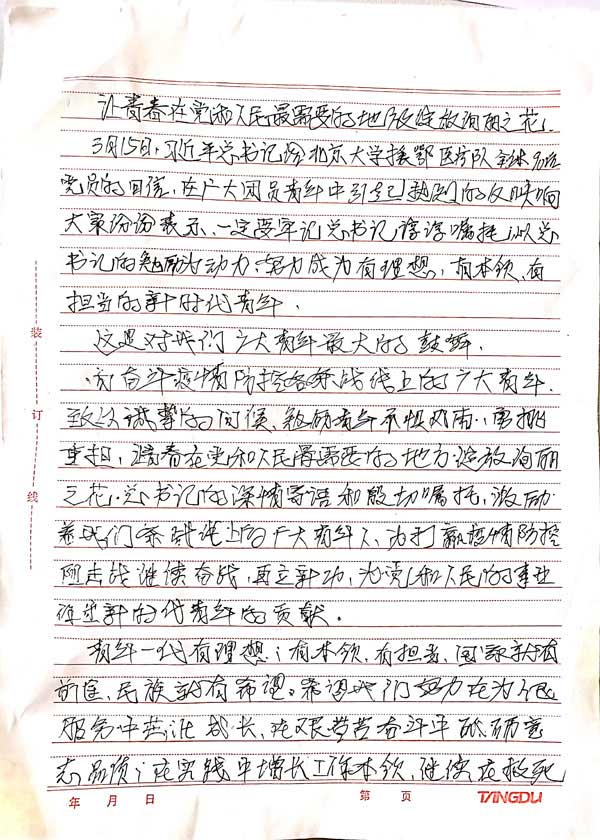 让青春在党和人民最需要的地方绽放绚丽之花
3月15日,习近平总书记给北京大学援鄂医疗队全体90后
党员的回信,在广大团员青年中引起热烈的反响
大家纷纷表示、一定要牢记总书记谆谆嘱托,以总
书记的勉励为动力,努力成为有理想,有本领,有
担当的新时代青年.
这是对我们广大青年最大的鼓舞.
向奋斗疫情防控各条战线上的广大青年.
致以诚挚的问候、勉励青年不惧风雨,勇挑
重担,让青春在党和人民最需要的地方绽放绚丽
之花.总书记的深情寄语和殷切嘱托,激励
着我们各条战线上的广大青年人,为打赢疫情防控
阻击战继续奋战,再立新功,为党和人民的事业
作出新时代青年的贡献.
青年一代有理想,有本领,有担当,国家就有
前途,民族就有希望。希望我们努力在为人民
服务中茁壮成长,在艰苦奋斗中砥砺意
志品质,在实践中增长工作本领,继续在救死
装
订
线
年 月 日 第 页 TANGDU